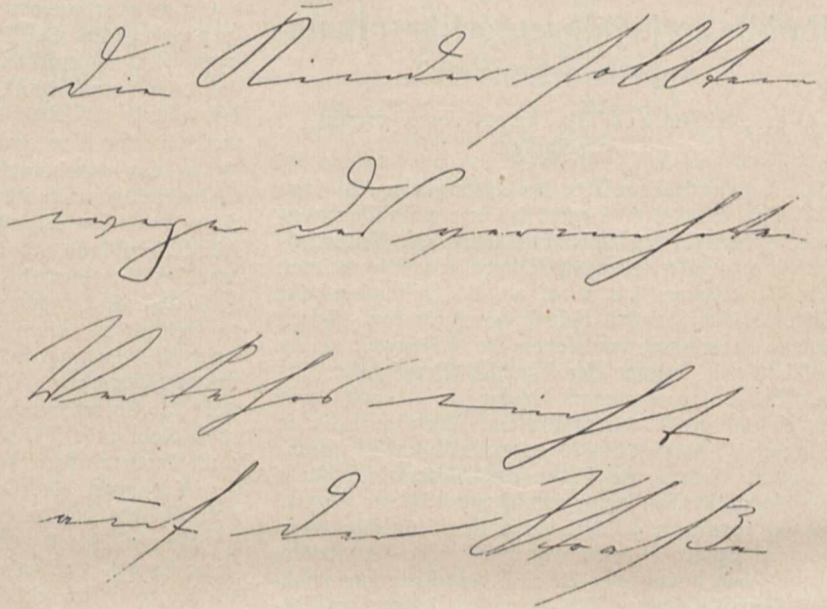 Die Kinder sollten
wegen des vermehrten
Verkehrs nicht
auf der Straße